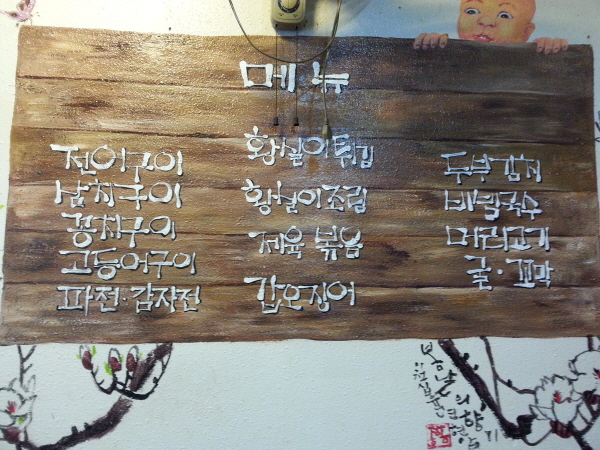 메뉴
전어구이
삼치구이
꽁치구이
고등어구이
파전·감자전
황실이튀김
황실이조림
제육볶음
갑오징어
두부김치
비빔국수
머릿고기
굴·꼬막
봄날의 향기